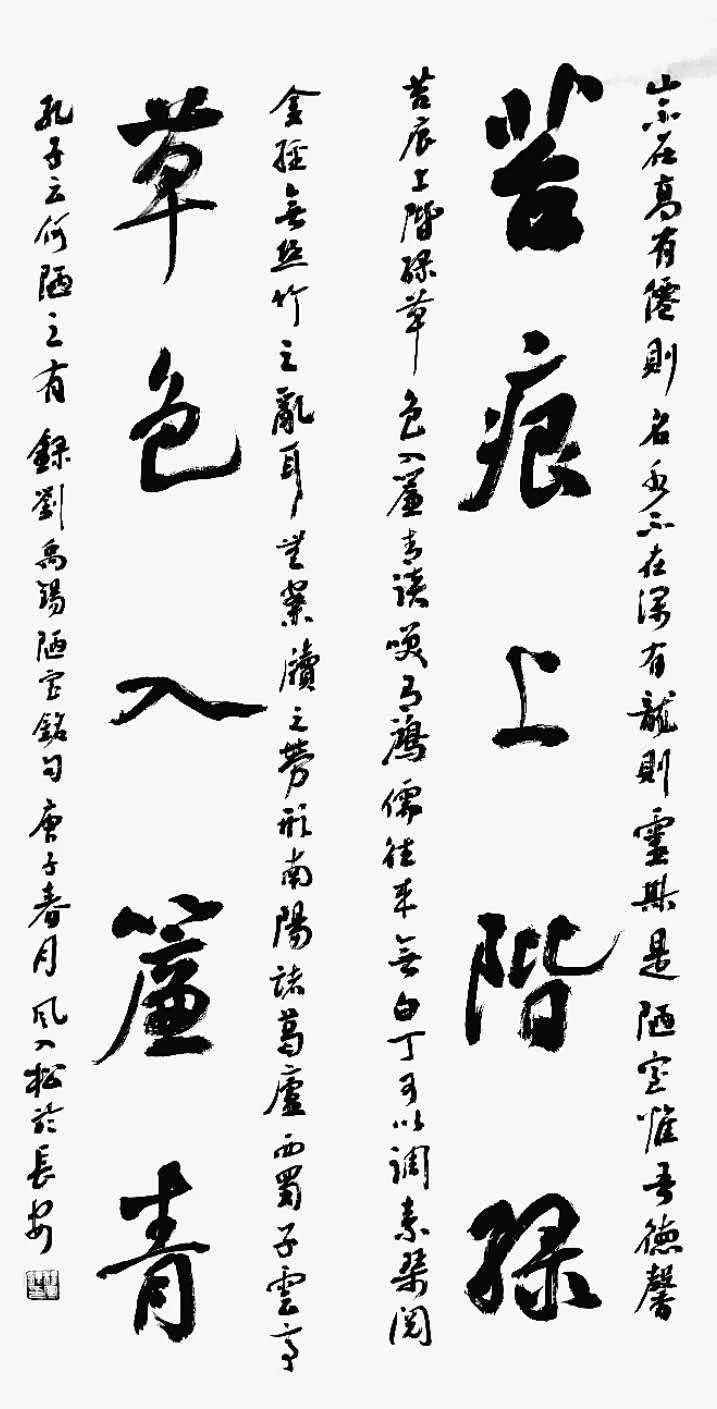 山不在高有僊則名水不在深有龍則靈斯是陋室惟吾德馨
苔痕上階緑
苔痕上階緑草色入簾青談咲有鴻儒往來無白丁可以調素琴閱
金經無絲竹之亂耳無案牘之勞形南陽諸葛廬西蜀子雲亭
草色入簾青
孔子云何陋之有 錄劉禹錫陋室銘句 庚子春月 風入松於長安